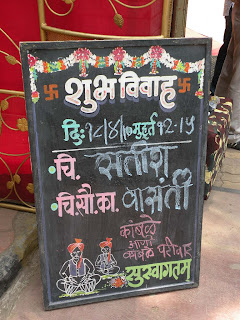 शुभ विवाह
दि: १८/४/१० मुहूर्त १२-१५
चि. सतीश
चि.सौ.का. वासंती
कांबळे
आणि
कांबळे परिवार
सुस्वागतम